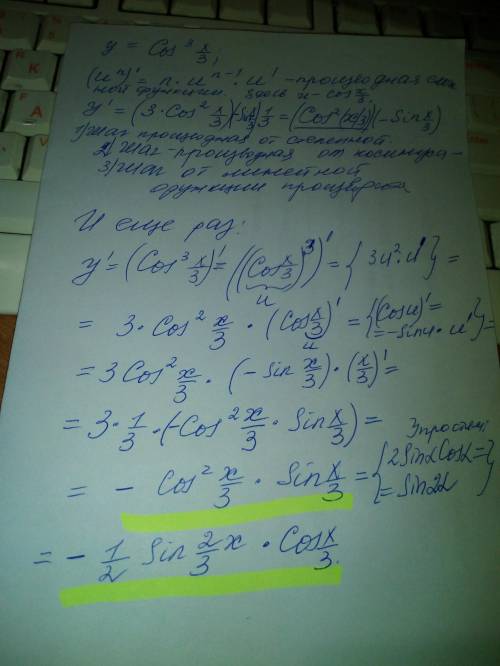 y = Cos³ x/3;
(uⁿ)' = n·uⁿ⁻¹·u' - производная слож
ной функции. Здесь u - cos x/3
y' = (3·Cos² x/3)(-Sin x/3) 1/3 = (Cos²(x/3))(-Sin x/3)
1) шаг производная от степенной
2) шаг - производная от косинуса -
3) шаг от линейной
функции производная
И еще раз:
y' = (Cos³ x/3)' = ((Cos x/3)³)' = {3u²·u'} =
u
= 3·Cos² x/3 · (Cos x/3)' = {(Cos u)' =
= -sin u · u'} =
u
= 3 Cos² x/3 · (-sin x/3) · (x/3)' =
= 3·1/3·(-Cos² x/3 · Sin x/3) =
= - Cos² x/3 · Sin x/3 = {2SinαCosα =
= Sin2α}
= - 1/2 Sin 2/3 x · Cos x/3.